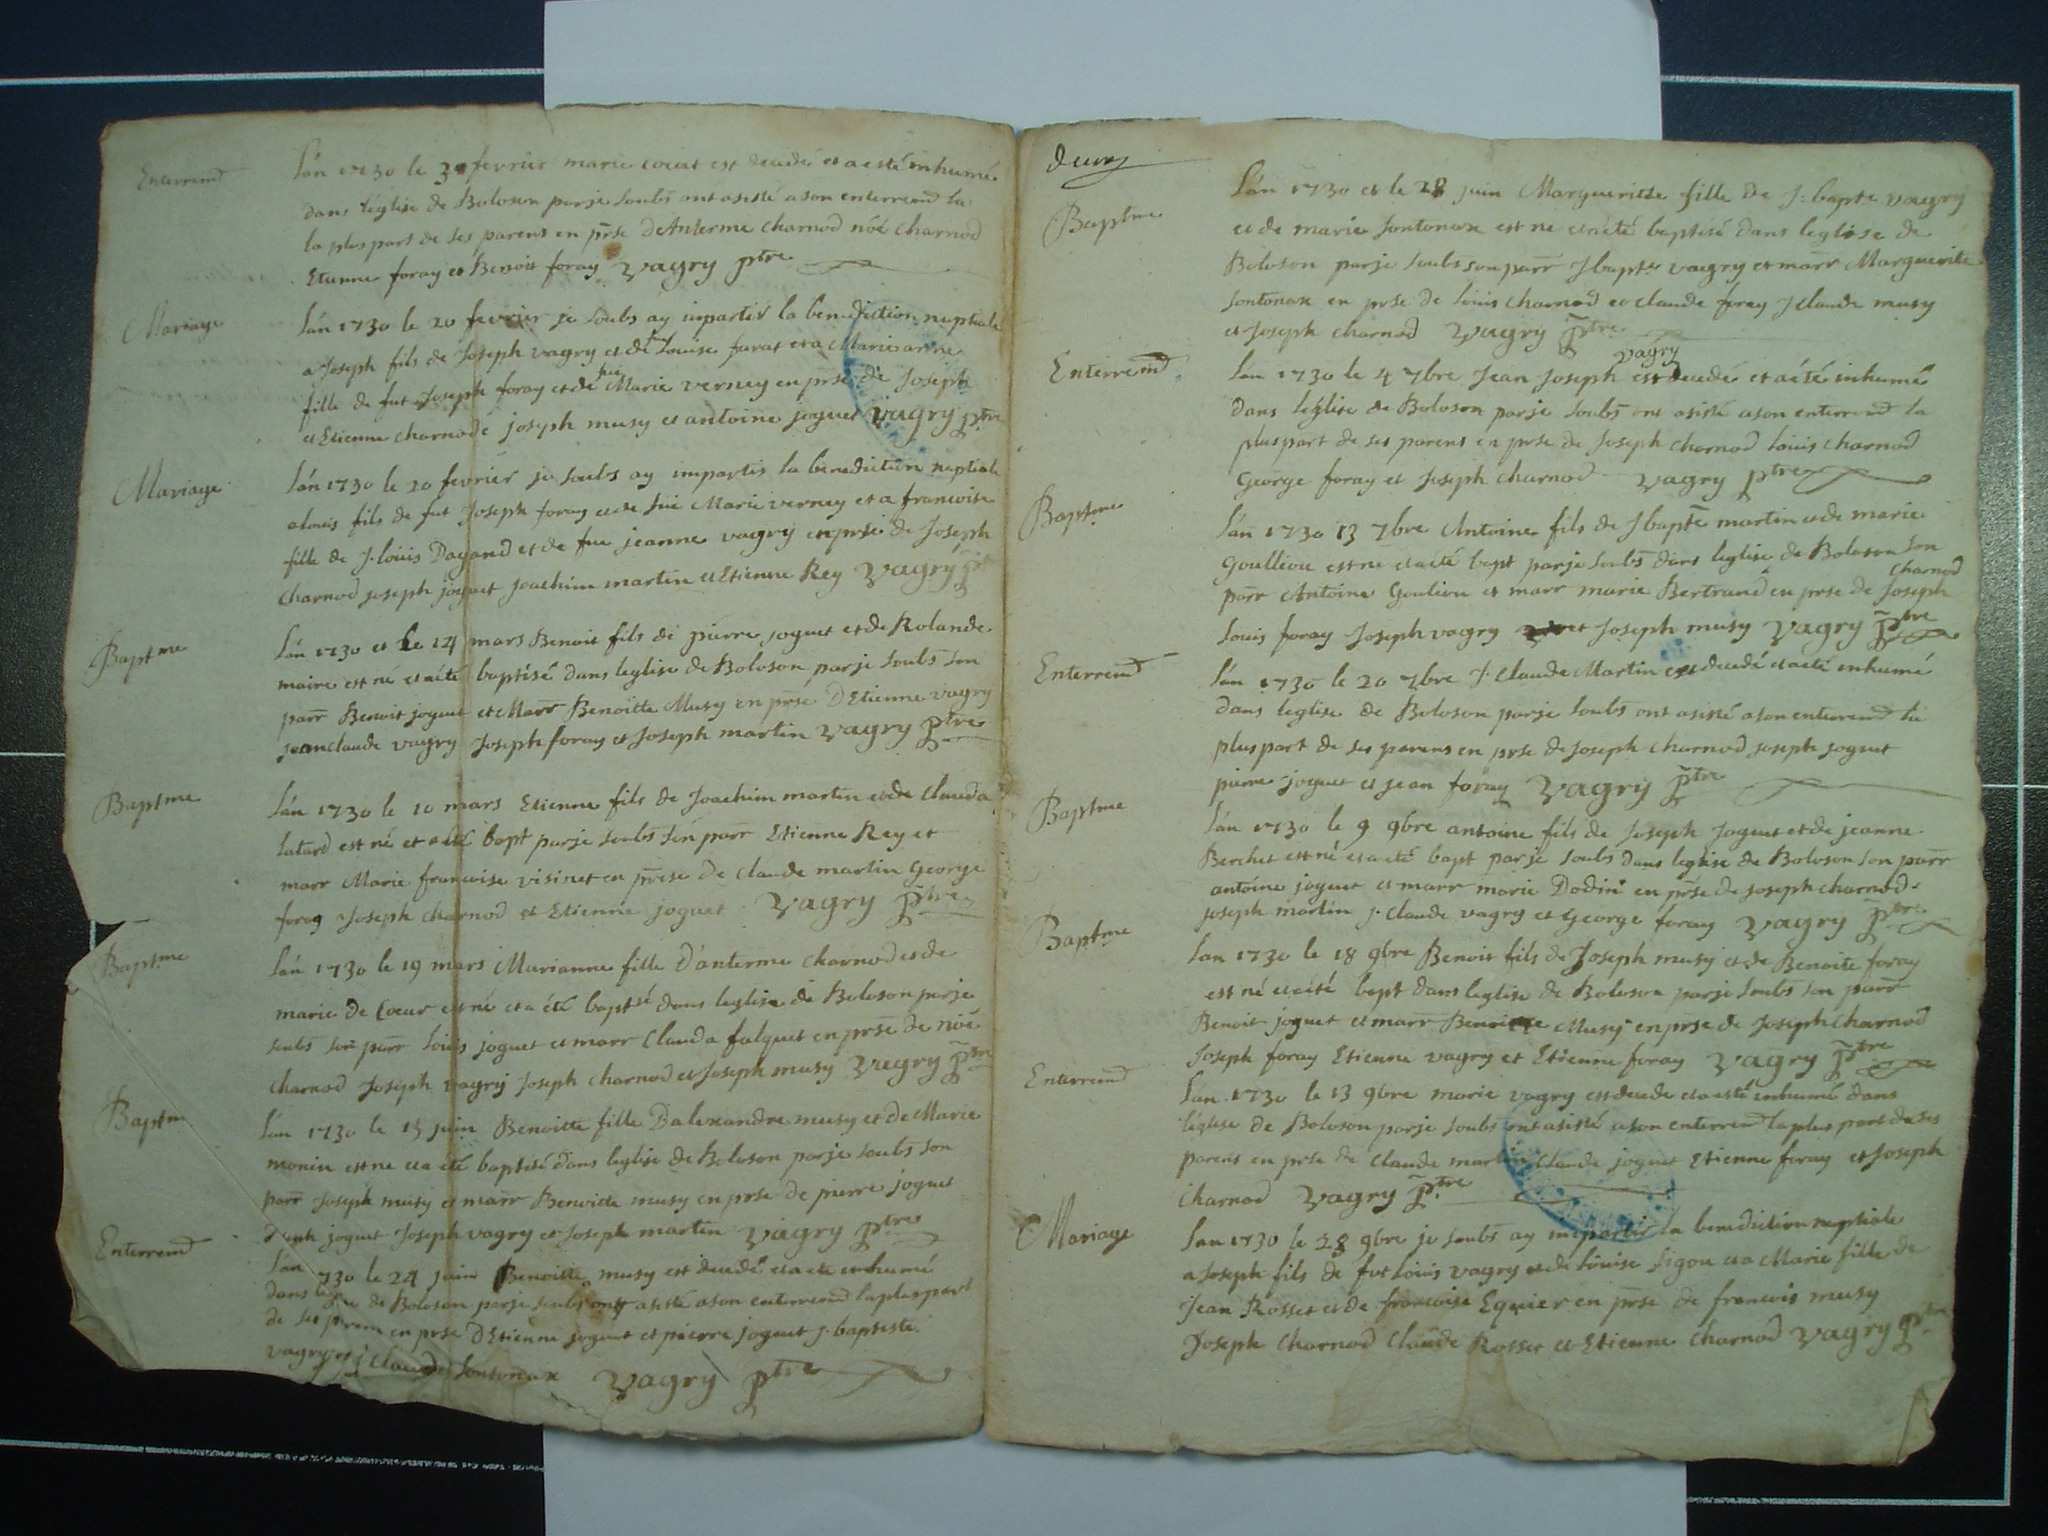 Enterremt
L'an 1730 le 3 fevrier marie coeur est decedé et a esté inhumé
dans l'église de Boloson par je soubs ont asisté a son enterremt la
la plus part de ses parens en prse d'Anterme charnod noé charnod
Etienne foray et Benoit foray vagry ptre
Mariage
L'an 1730 le 20 fevrier je soubs ay impartir la benediction nuptiale
a Joseph fils de Joseph vagry et de Louise et a Marianne
fille de fut Joseph foray et de fue Marie verney en prse de Joseph
et Etienne charnod joseph musy et antoine joguet vagry ptre
Mariage
L'an 1730 le 20 fevrier je soubs ay impartir la benediction nuptiale
a louis fils de fut Joseph foray et de fue Marie verney et a francoise
fille de J. louis Dagand et de fue jeanne vagry en prse de Joseph
charnod joseph joguet joachim martin et Etienne Rey vagry pt
Baptme
L'an 1730 et le 14 mars Benoit fils de pierre joguet et de Rolande
maire est né et a été baptisé dans l'eglise de Boloson par je soubs son
parr Benoit joguet et Marr Benoitte Musy en prse D'Etienne vagry
jean claude vagry Joseph foray et Joseph martin vagry ptre
Baptme
L'an 1730 le 10 mars Etienne fils de Joachim martin et de Clauda
est né et a été bapt par je soubs son parr Etienne Rey et
marr Marie francoise visinet en prese de Claude martin George
foray Joseph charnod et Etienne joguet vagry ptre
Baptme
L'an 1730 le 19 mars Marianne fille d'anterme charnod et de
marie de Coeur est né et a été baptsé dans l'eglise de Boloson par je
soubs son parr Louis joguet et marr Clauda falquet en prse de noé
charnod Joseph vagry Joseph charnod et Joseph musy vagry ptre
Baptm
L'an 1730 le 15 juin Benoitte fille D'alexandre musy et de Marie
monin est né et a été baptisé dans l'eglise de Boloson par je soubs son
parr Joseph musy et marr Benoitte musy en prse de pierre joguet
joguet Joseph vagry et Joseph martin vagry ptre
Enterremt
L'an 730 le 24 juin Benoitte musy est decedé et a été inhumé
dans de Boloson par je soubs ont asisté a son enterremt la plus part
de ses parens en prse D'Etienne joguet et pierre joguet j. baptiste
vagry et j Claude sontonax vagry ptre
deux
Baptme
L'an 1730 et le 28 juin Margueritte fille de J: bapte vagry
et de marie sontonax est ne et a été baptisé dans l'eglise de
Boloson par je soubs son parr J bapte vagry et marr Marguerite
sontonax en prse de louis charnod et claude foray J claude musy
et Joseph charnod vagry ptre
Enterremt
vagry
L'an 1730 le 4 7bre Jean Joseph est decedé et a été inhumé
dans l'église de Boloson par je soubs ont asisté a son enterremt la
plus part de ses parens en prse de Joseph charnod louis charnod
George foray et Joseph charnod vagry ptre
Baptme
L'an 1730 13 7bre Antoine fils de J bapte martin et de marie
Goulliou est ne et a été bapt par je soubs dans l'eglise de Boloson son
charnod
parr Antoine Gouliou et marr marie Bertrand en prse de Joseph
Louis foray Joseph vagry et Joseph musy vagry ptre
Enterremt
L'an 1730 le 20 7bre J. Claude Martin est decedé et a été inhumé
dans l'eglise de Boloson par je soubs ont asisté a son enterremt la
plus part de ses parens en prse de Joseph charnod joseph joguet
pierre joguet et jean foray vagry ptre
Baptme
L'an 1730 le 9 9bre antoine fils de Joseph Joguet et de jeanne
Berchet est né et a été bapt par je soubs dans l'eglise de Boloson son parr
antoine joguet et marr marie Dodin en prse de joseph charnod
joseph martin j. claude vagry et George foray vagry ptre
Baptme
L'an 1730 le 18 9bre Benoit fils de Joseph musy et de Benoite foray
est né et a été bapt dans l'eglise de Boloson par je soubs son parr
Benoit joguet et marr Benoitte Musy en prse de Joseph charnod
Joseph foray Etienne vagry et Etienne foray vagry ptre
Enterremt
L'an 1730 le 13 9bre marie vagry est decedé et a esté inhumé dans
l'église de Boloson par je soubs ont asisté a son enterremt la plus part de ses
parens en prse de claude martin claude joguet Etienne foray et Joseph
charnod vagry ptre
Mariage
L'an 1730 le 28 9bre je soubs ay impartir la benediction nuptiale
a Joseph fils de fut Louis vagry et de louise Ligou et a Marie fille de
Jean Rosset et de francoise Equier en prse de francois musy
Joseph charnod Claude Rosset et Etienne charnod vagry ptre